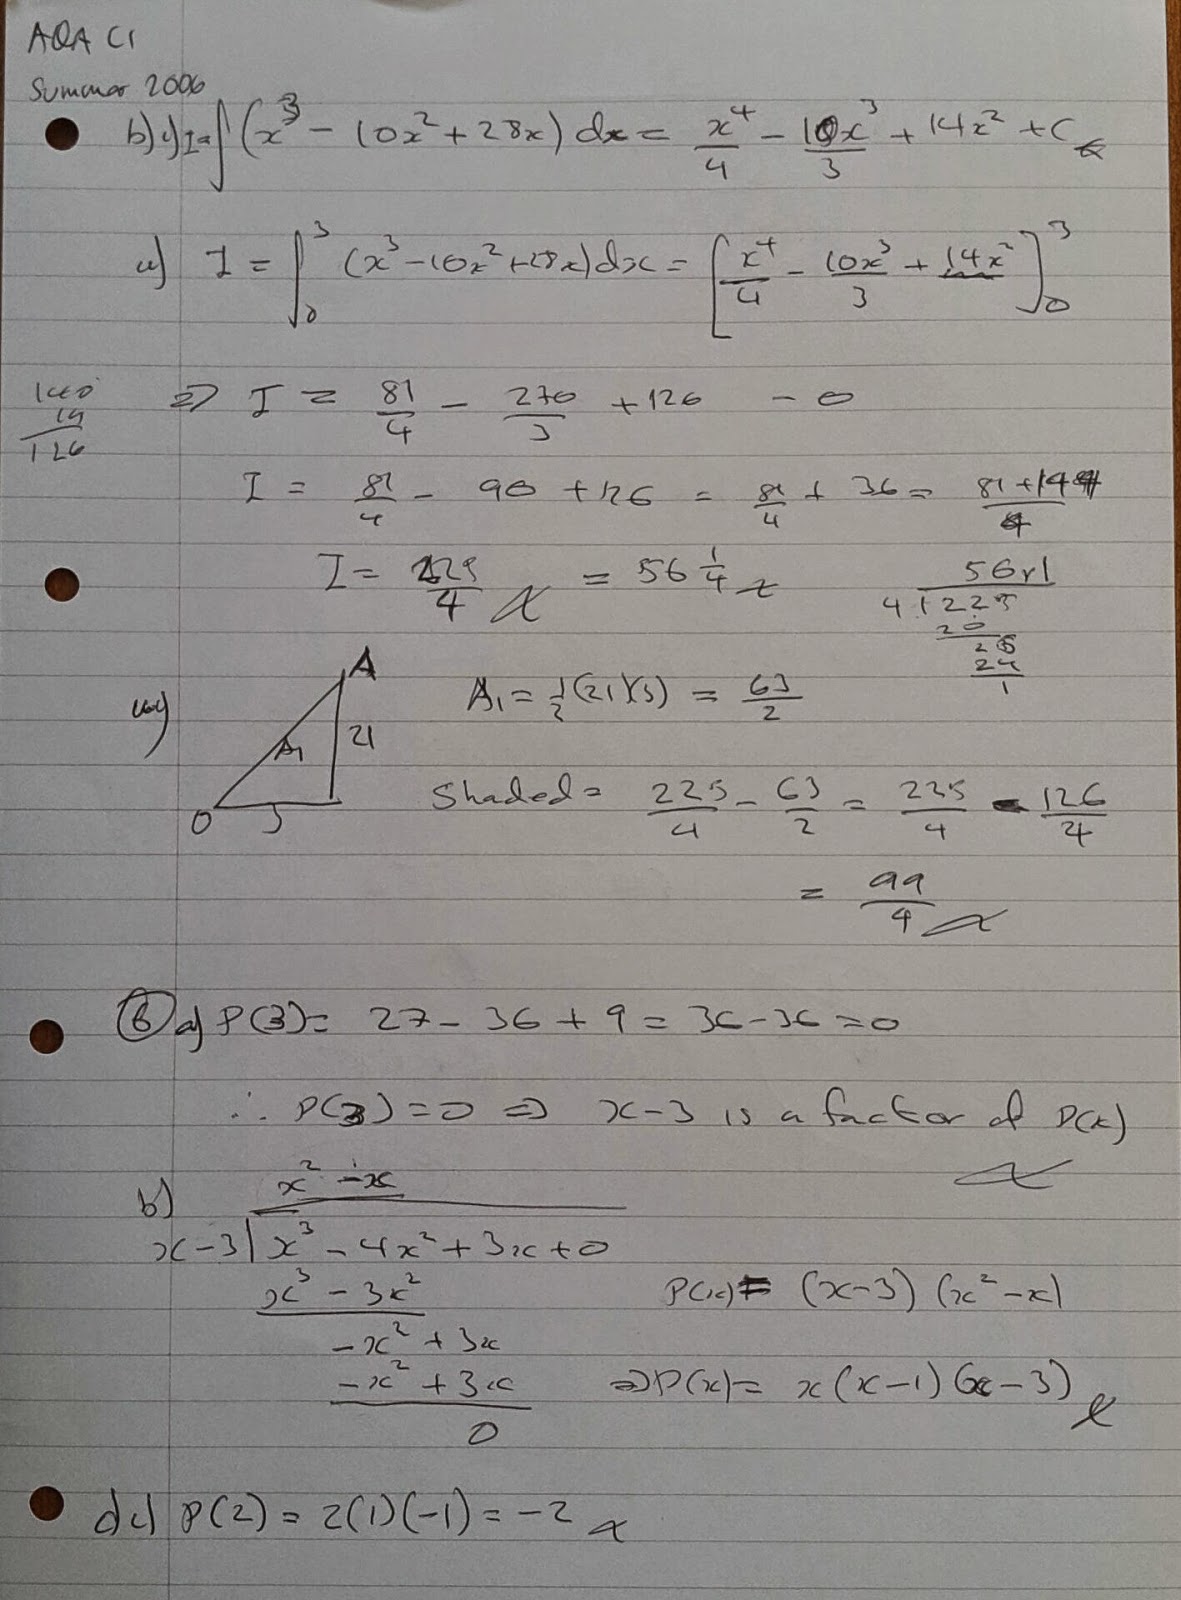 AQA C1
Summer 2006
b) i) I = ∫ (x³ - 10x² + 28x) dx = x⁴/4 - 10x³/3 + 14x² + C
ii) I = ∫₀³ (x³ - 10x² + 28x) dx = [x⁴/4 - 10x³/3 + 14x²]₀³
140
14
126
⇒ I = 81/4 - 270/3 + 126 - 0
I = 81/4 - 90 + 126 = 81/4 + 36 = (81 + 144)/4
I = 225/4 = 56 1/4
56 r 1
4 | 225
20
25
24
1
iii)
A
A₁
21
O
3
A₁ = ½(21)(3) = 63/2
Shaded = 225/4 - 63/2 = 225/4 - 126/4
= 99/4
⑥ a) P(3) = 27 - 36 + 9 = 36 - 36 = 0
∴ P(3) = 0 ⇒ x - 3 is a factor of P(x)
b)
x² - x
x - 3 | x³ - 4x² + 3x + 0
x³ - 3x²
P(x) = (x - 3)(x² - x)
-x² + 3x
-x² + 3x
⇒ P(x) = x(x - 1)(x - 3)
0
c) i) P(2) = 2(1)(-1) = -2